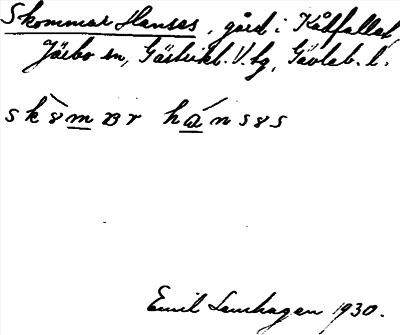 Skommar Hanses, gård i Kådfallet,
Järbo sn, Gästrikl. V. tg, Gävleb. l.
skòmar hánsɛs
Emil Lamhagen 1930.